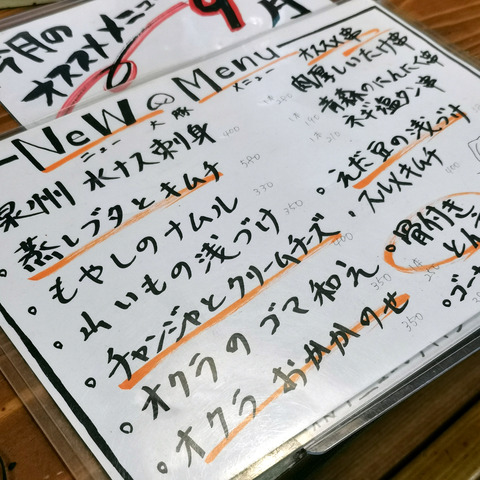 今月の
オススメメニュー
9月
NeW Menu
ニュー 大豚 メニュー
泉州 水ナス刺り身 400
蒸しブタとキムチ 580
もやしのナムル 330
山いもの浅づけ 350
チャンジャとクリームチーズ
オクラのゴマ和え 350
オクラおかかのせ 350
オススメ串
肉厚しいたけ串
青森のにんにく串
ネギ塩タン串
えだ豆の浅づけ
スルメキムチ 400
骨付き
とん
ゴー